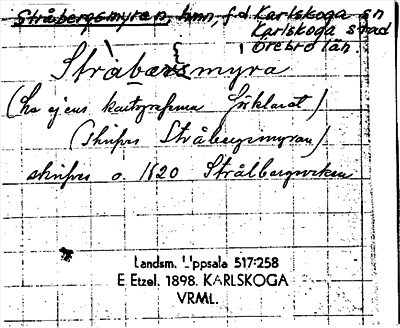 Stråbergsmyran, hmn, f.d. Karlskoga sn
Karlskoga stad
Örebro län.
Stråbärsmyra
(ha ejens kartografema förklarat)
(skrifves Stråbergsmyran)
skrifves o. 1820 Strålbergsvreten
Landsm. Uppsala 517:258
E Etzel. 1898. KARLSKOGA
VRML.